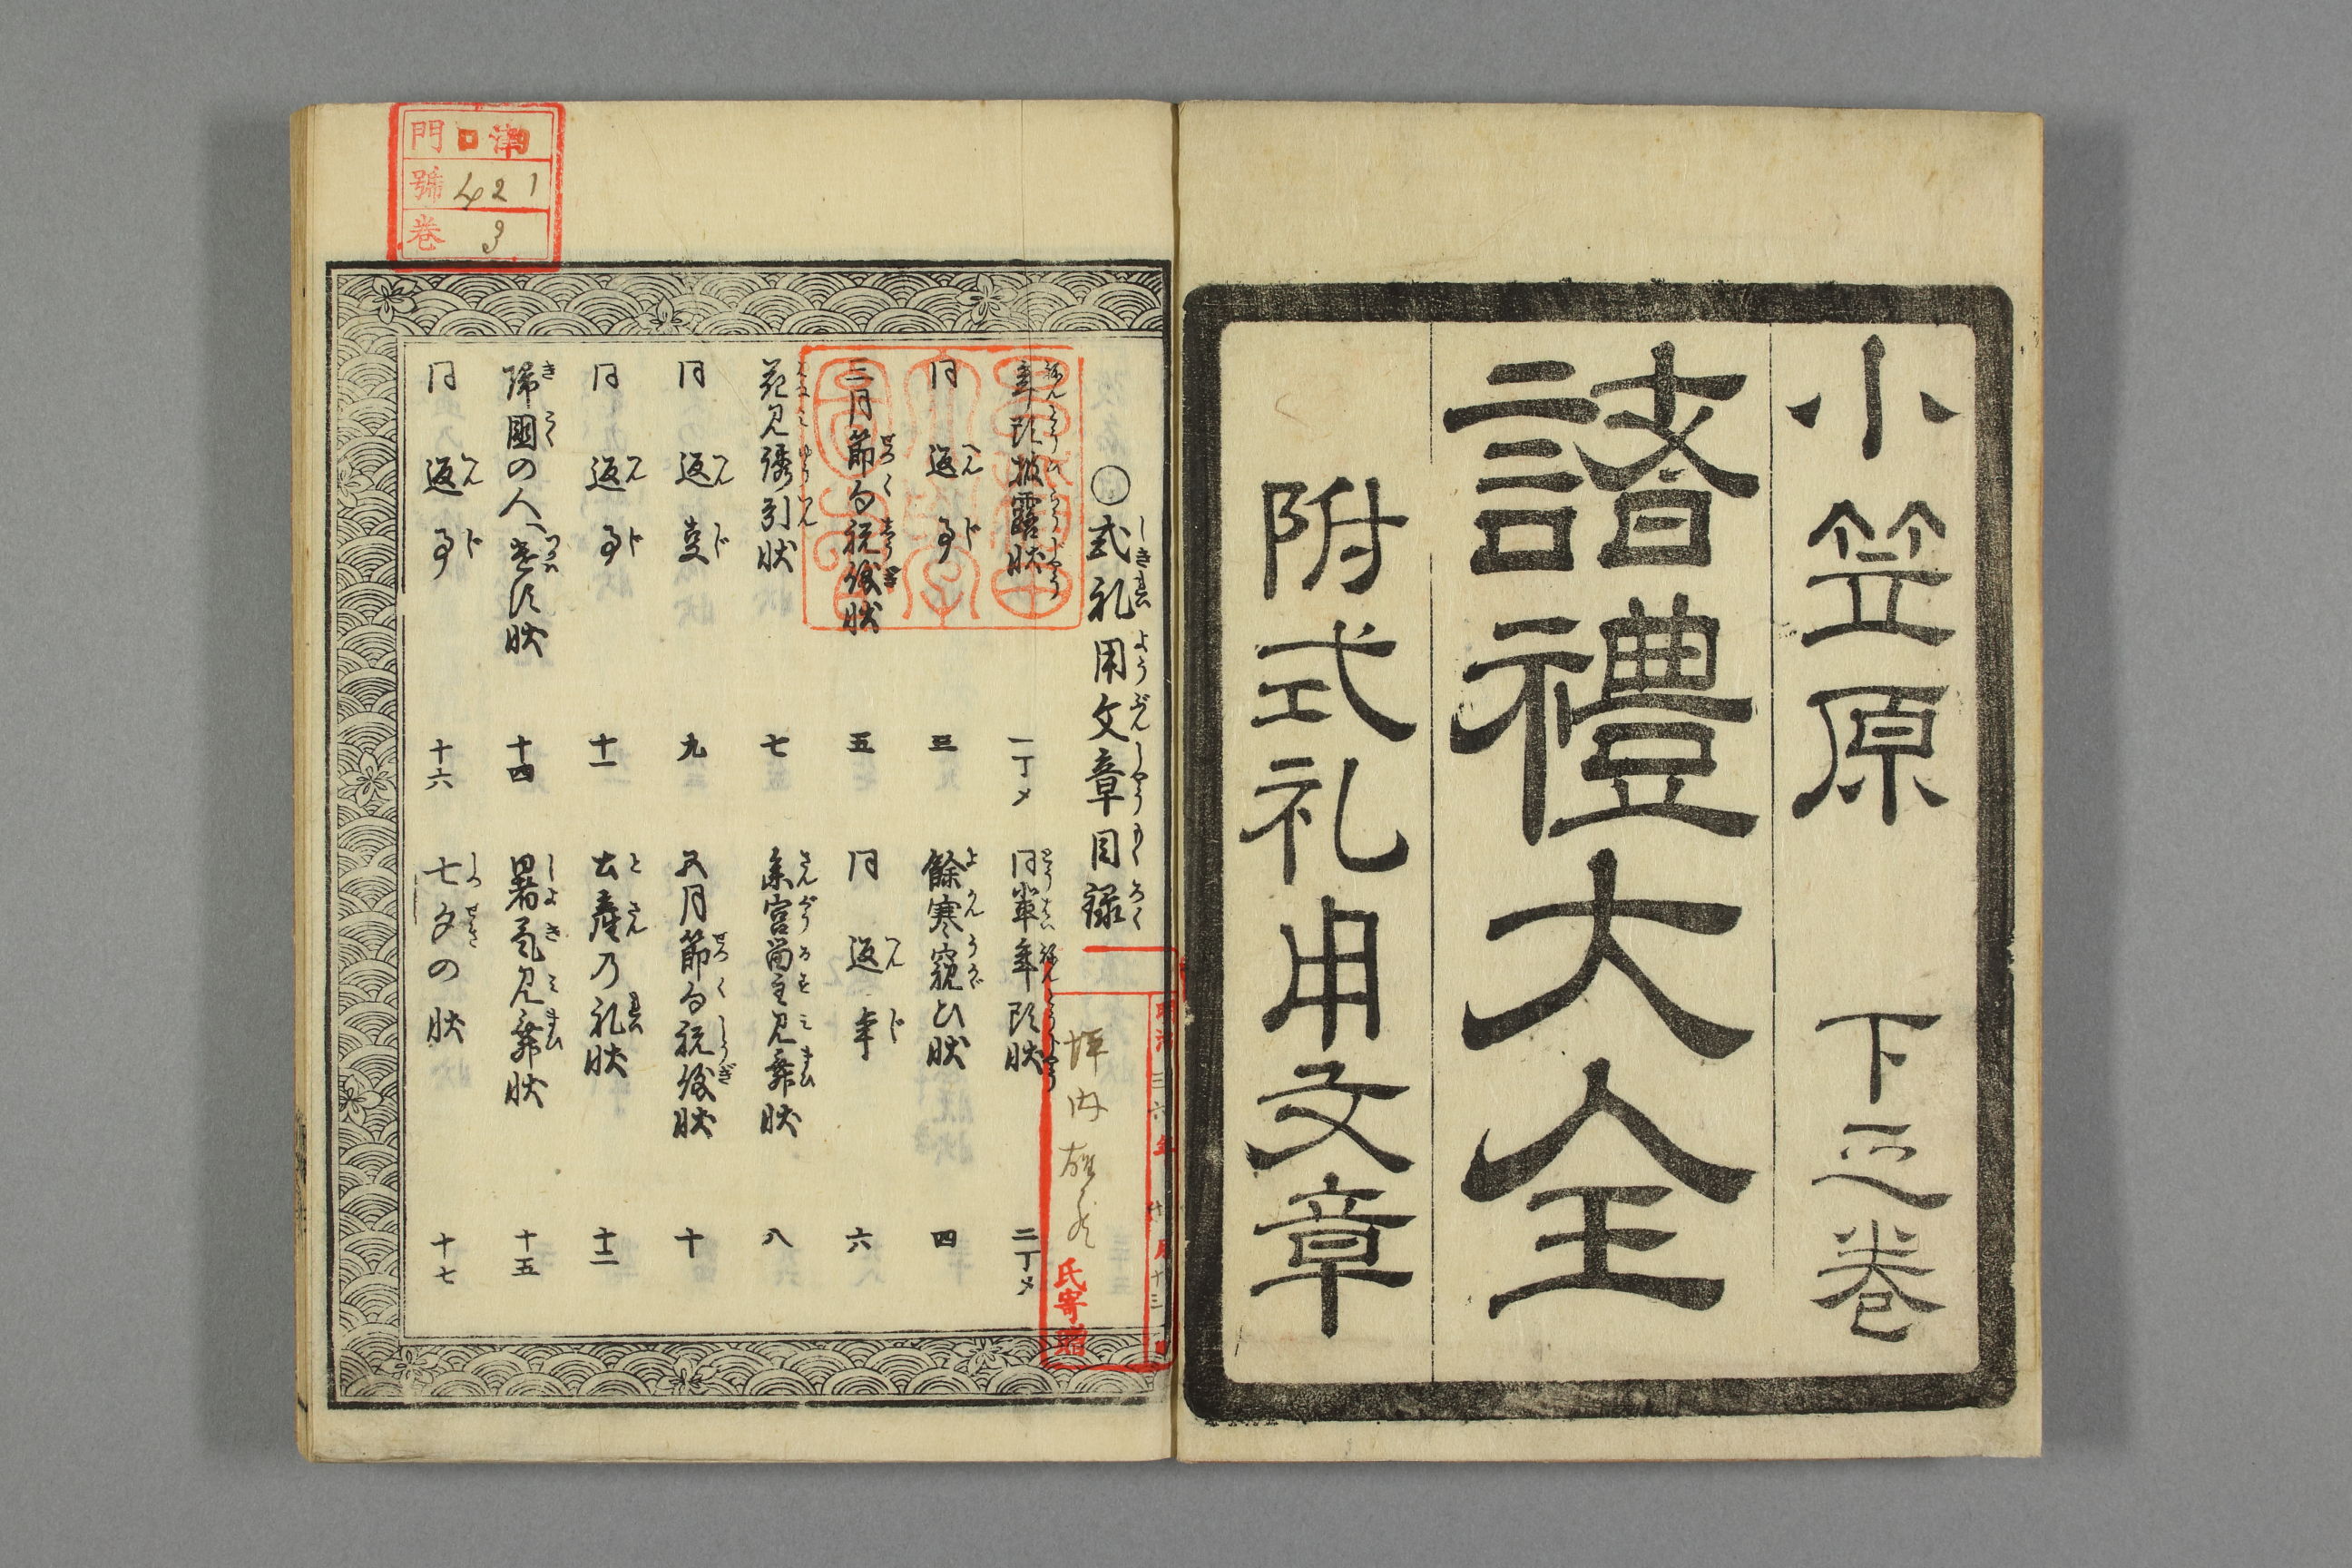 小笠原 下之巻
諸禮大全
附式礼用文章
〇式礼用文章目録
年頭披露状 一丁メ
同輩年頭状 二丁メ
同返事 三
餘寒窺ひ状 四
三月節句祝儀状 五
同返事 六
花見誘引状 七
参宮留主見舞状 八
同返事 九
五月節句祝儀状 十
同返事 十一
土産乃礼状 十二
帰國の人へ遣す状 十四
暑氣見舞状 十五
同返事 十六
七夕の状 十七
門
號 421
卷 3
坪内雄蔵
氏寄贈